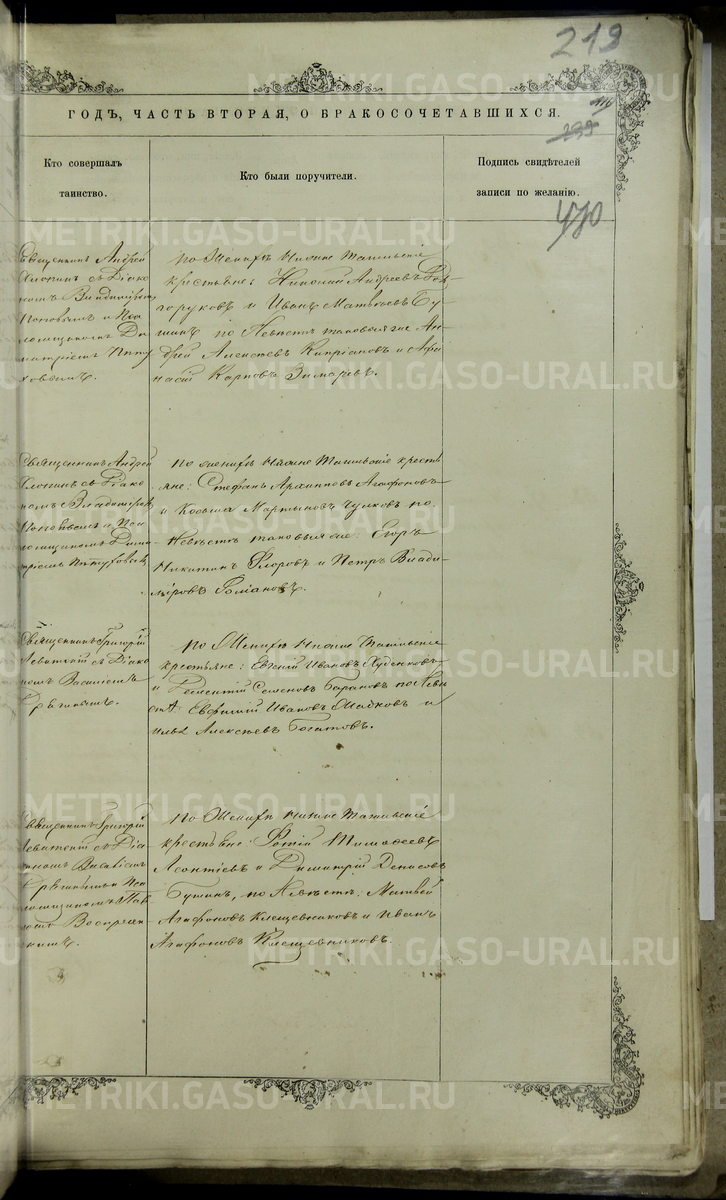 219
METRIKI.GASO-URAL.RU
ГОДЪ, ЧАСТЬ ВТОРАЯ, О БРАКОСОЧЕТАВШИХСЯ.
116
239
Кто совершалъ таинство.
Кто были поручители.
Подпись свидѣтелей записи по желанію.
470
Священникъ Андрей
съ Діако
номъ Владиміромъ
Поповымъ и Пса
ломщикомъ Ди
митріемъ Пѣту
ховымъ.
По Женихѣ Нижне Тагильскіе
крестьяне: Николай Андреевъ Дол
горуковъ и Иванъ Матвѣевъ Бу-
шинъ по Невѣстѣ таковыя же Ан-
дрей Алексѣевъ Кипріановъ и Афа
насій Карповъ
Священникъ Андрей
съ Діако
номъ Владиміромъ
Поповымъ и Пса
ломщикомъ Дими
тріемъ Пѣтуховымъ
По женихѣ Нижне Тагильскіе кресть
яне: Стефанъ Архиповъ Агафоновъ
и Козьма Мартыновъ Чулковъ по
Невѣстѣ таковыя же: Егоръ
Никитинъ Флоровъ и Петръ Влади-
міровъ Романовъ.
Священникъ Григорій
Левитскій съ Діако
номъ Василіемъ
По Женихѣ Нижне Тагильскіе
крестьяне: Евгеній Ивановъ
и Терентій Семеновъ Барановъ по Невѣ
стѣ: Евфимій Ивановъ и
Илья Алексѣевъ Богатовъ.
Священникъ Григорій
Левитскій съ Діа
кономъ Василіемъ
и Пса
ломщикомъ Пав
ломъ Воскресен
скимъ.
По Женихѣ Нижне Тагильскіе
крестьяне: Фотій Тимофеевъ
Леонтіевъ и Димитрій Денисовъ
Бушинъ, по Невѣстѣ: Матвѣй
Агафоновъ Клещевниковъ и Иванъ
Агафоновъ Клещевниковъ.